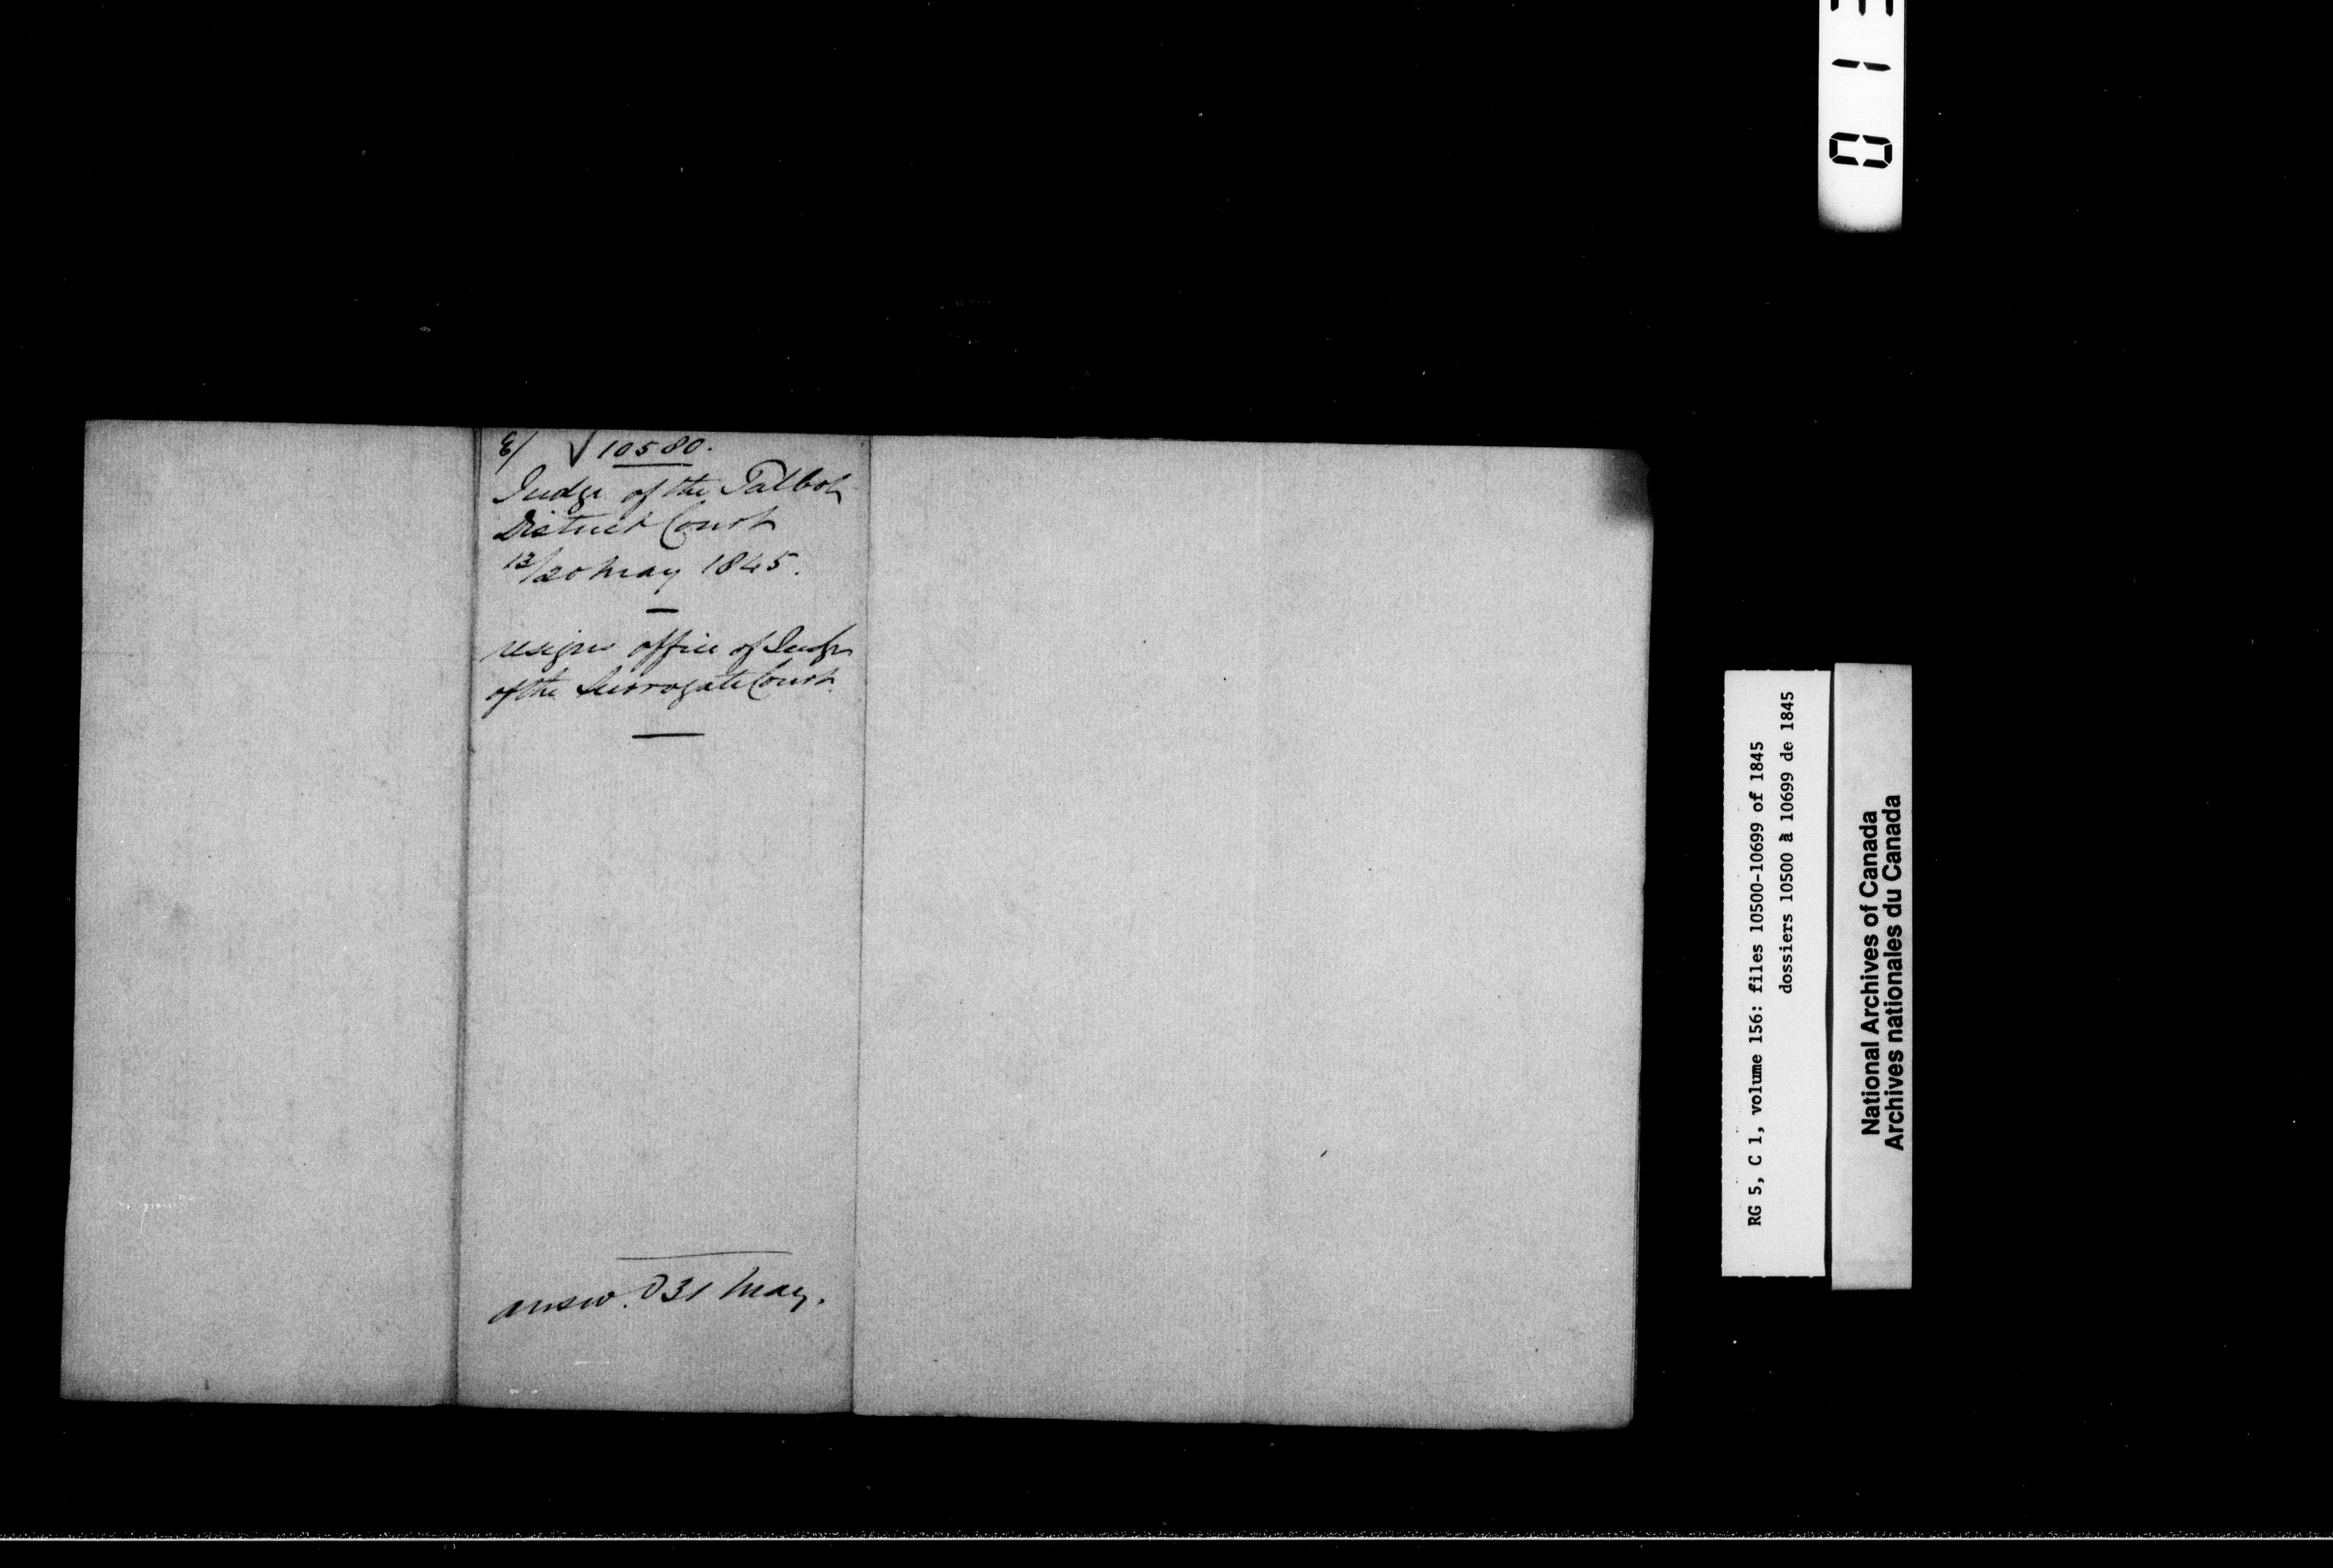 E/ √ 10580.
Judge of the Talbot
District Court
12/20 May 1845.
resigns office of Judge
of the Surrogate Court.
answ.d 31 May.
RG 5, C 1, volume 156: files 10500-10699 of 1845
dossiers 10500 à 10699 de 1845
National Archives of Canada
Archives nationales du Canada